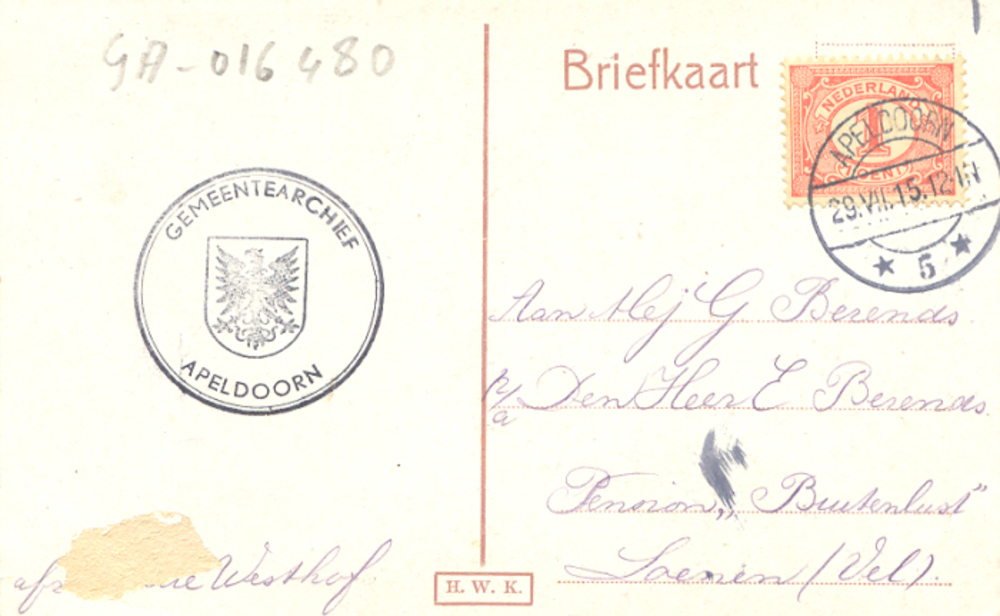 GA-016480
Briefkaart
NEDERLAND
1
CENT
APELDOORN
29.VII.15.12-1N
5
GEMEENTEARCHIEF
APELDOORN
Aan Mej G Berends
p/a Den Heer E Berends
Pension „Buitenlust"
Loenen (Vel).
afz Westhof
H. W. K.